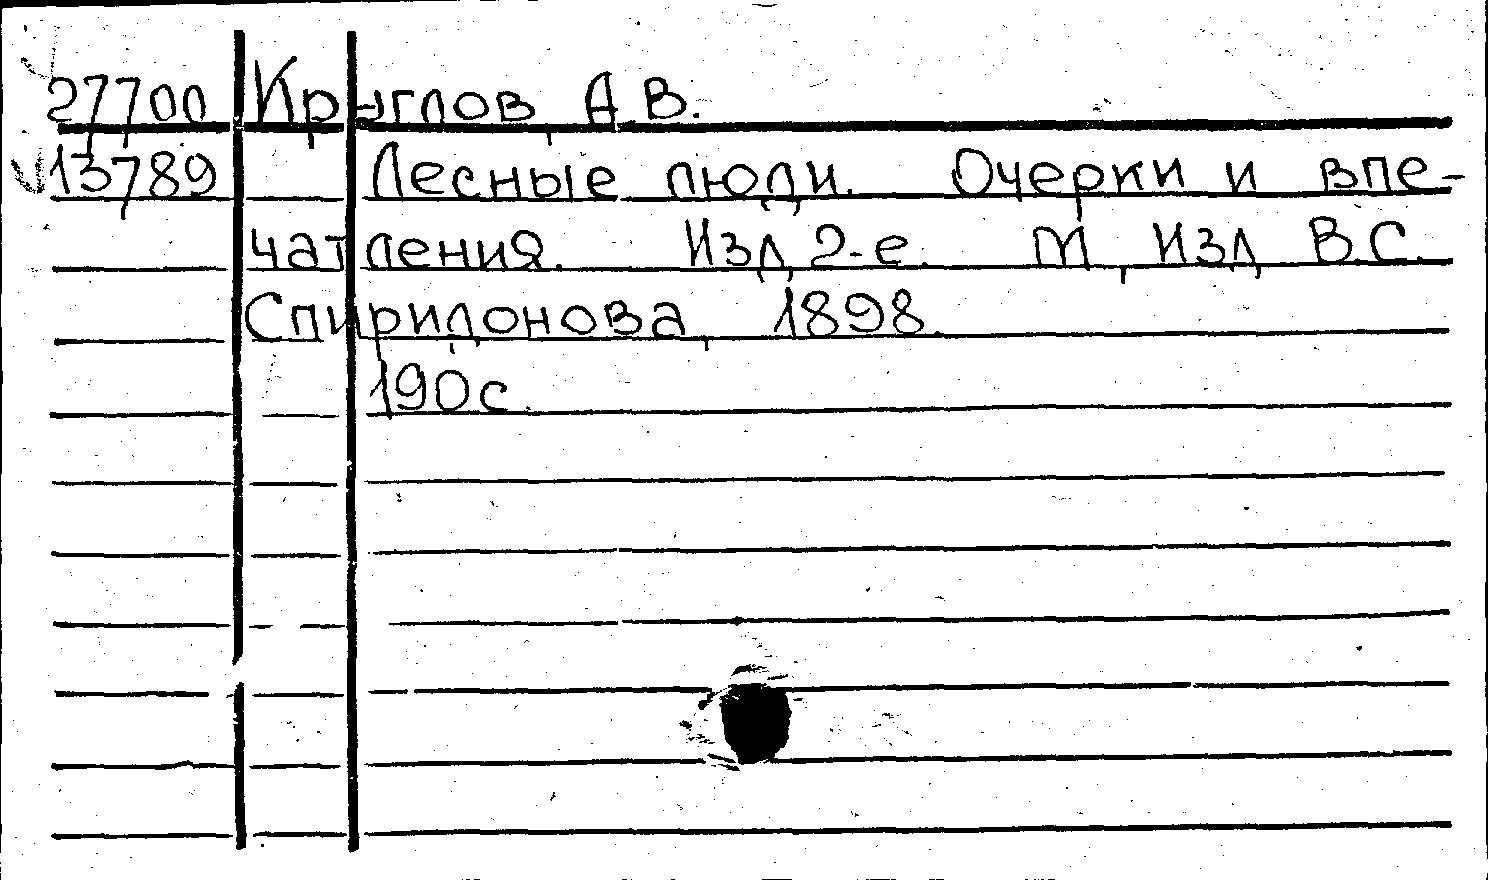 27700 Круглов, А.В.
13789 Лесные люди. Очерки и впе-
чатления. Изд. 2-е. М., Изд. В.С.
Спиридонова, 1898.
190с.